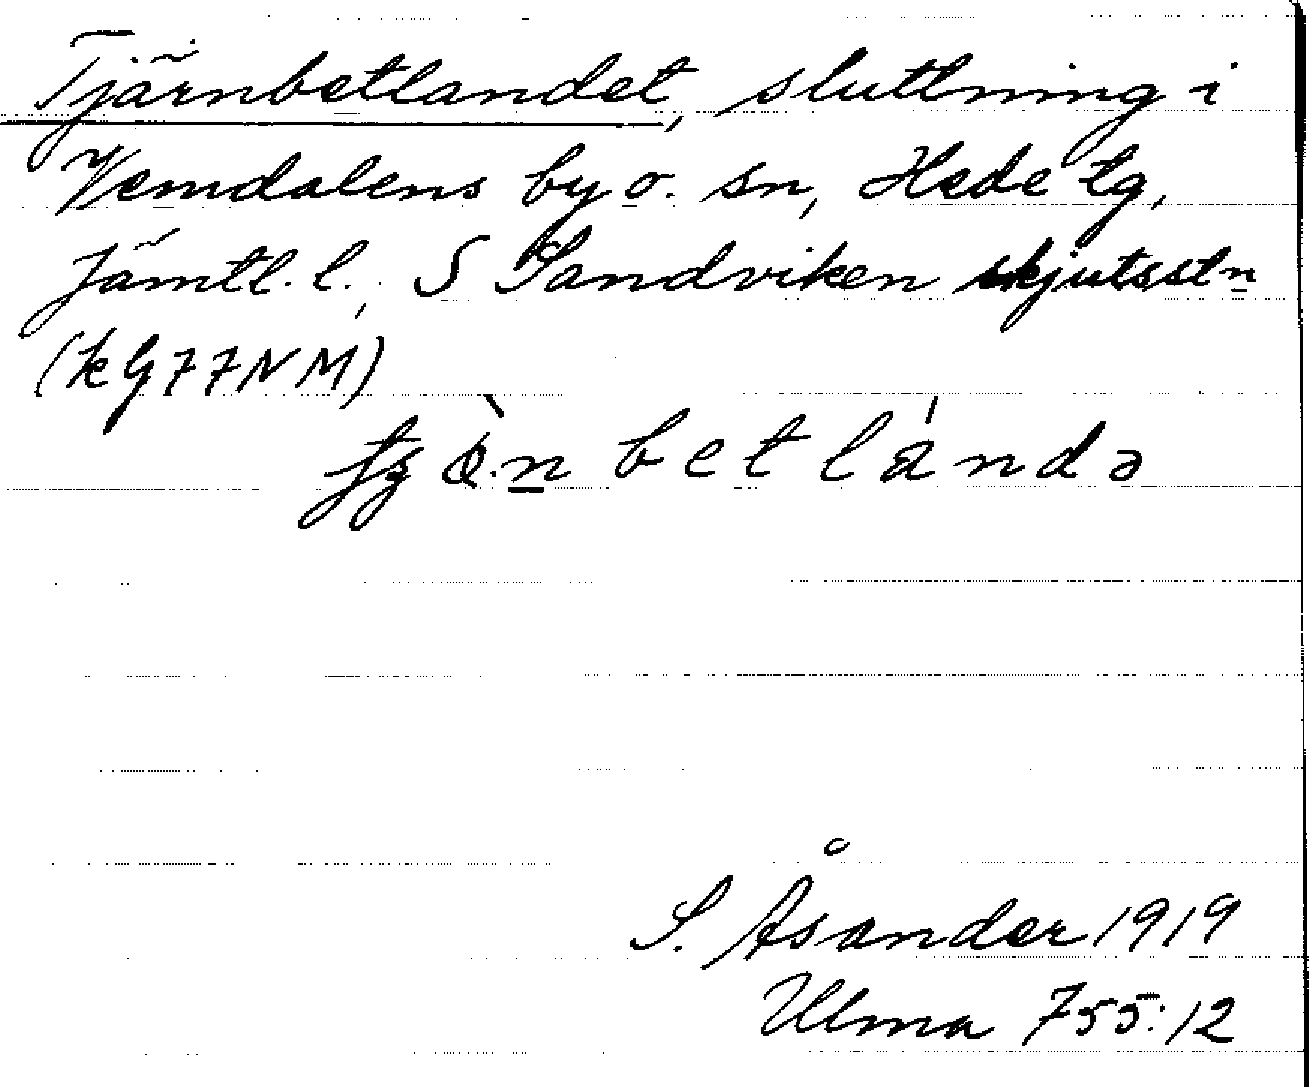 Tjärnbetlandet, sluttning i
Vemdalens by o. sn, Hede tg,
Jämtl. l., S Sandviken skjutsstn
(kG77NM)
betlandə
S. Åsander 1919
Ulma 755:12